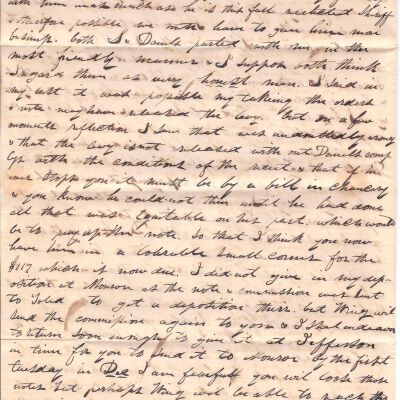 with him inasmuch as he is this fall reelected Sheriff
& therefore possible we may have to give him more
business. Both I & Daniels parted with him in the
most friendly manner & I suppose both think
I regard them as very honest men. I said in
my last it was possible my taking the orders
& note may have released the levy. But on a few
moments reflection I saw that was undoubtedly wrong
& that the levy is not released without Daniels comp
lys with the conditions of the receipt & that if he
ever stops you it must be by a bill in chancery
& you know he could not then until he had done
all that was Equitable on his part, which would
be to pay up the note. So that I think you now
have him in a tolerable small corner for the
$117 which is now due. I did not give in my dep-
osition at Monroe as the note & commission went but
to Toledo to get a deposition there. but King will
send the commission again to you & I shall endeavor
to return soon enough to give it at Jefferson
in time for you to send it to Monroe by the first
Tuesday in Dec I am fearful you will lose those
notes but perhaps King will be able to reach the